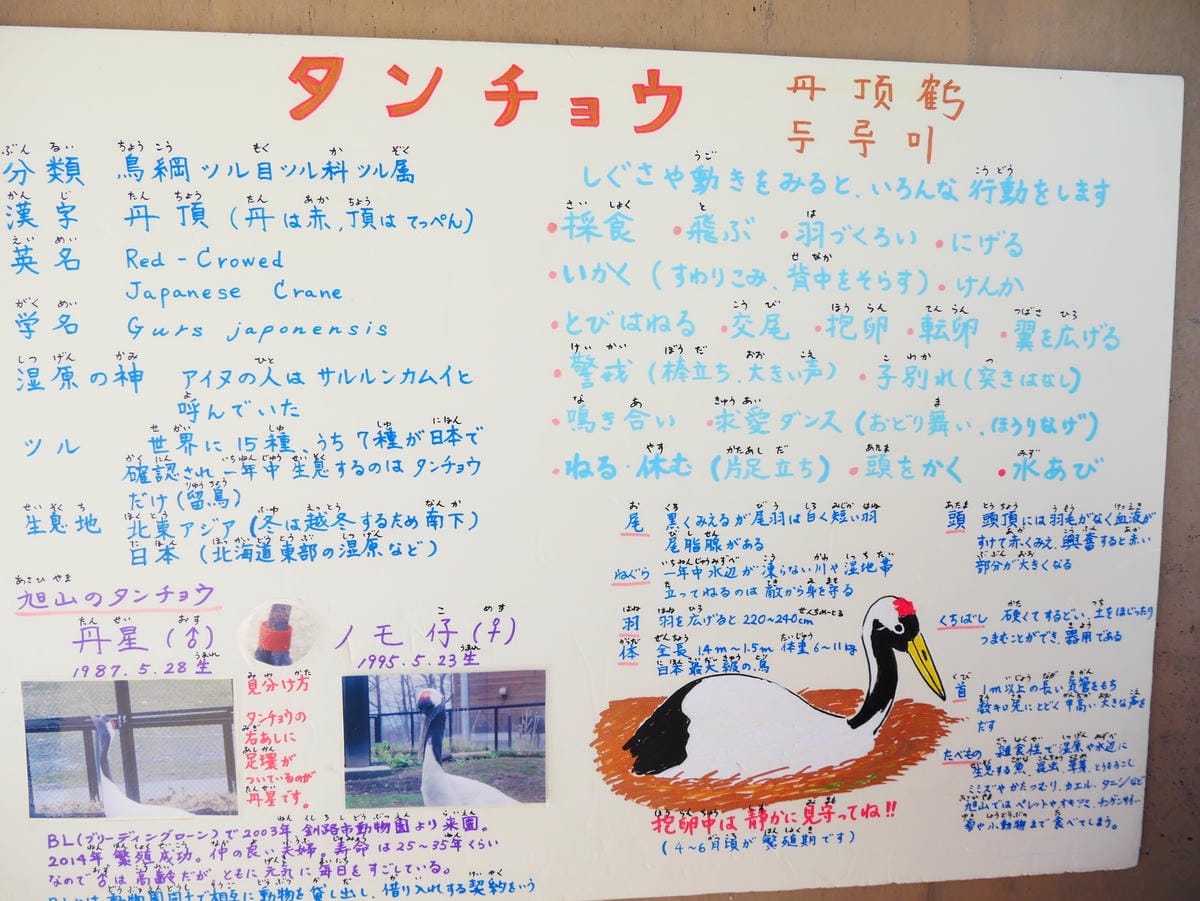 タンチョウ
丹 顶 鹤
두 루 미
分類 鳥綱ツル目ツル科ツル属
漢字 丹頂(丹は赤、頂は てっぺん)
英名 Red-Crowed
Japanese Crane
学名 Gurs japonensis
湿原の神 アイヌの人は サルルンカムイと
呼んでいた
ツル 世界に15種、うち7種が日本で
確認され 一年中 生息するのは タンチョウ
だけ(留鳥)
生息地 北東アジア(冬は越冬するため南下)
日本(北海道東部の湿原など)
旭山のタンチョウ
丹星(♂)
1987.5.28生
ノモ仔(♀)
1995.5.23生
見分け方
タンチョウの
右あしに
足環が
ついているのが
丹星です。
BL(ブリーディングローン)で2003年 釧路市動物園より来園。
2014年 繁殖成功。仲の良い夫婦。寿命は25~35年くらい
なので ♂は高齢だが ともに元気に毎日をすごしている。
BLとは 動物園同士で相互に動物を貸し出し、借り入れする契約をいう
しぐさや動きをみると、いろんな行動をします
・採食 ・飛ぶ ・羽づくろい ・にげる
・いかく(すわりこみ、背中をそらす)・けんか
・とびはねる ・交尾 ・抱卵 ・転卵 ・翼を広げる
・警戒(棒立ち、大きい声) ・子別れ(突きはなし)
・鳴き合い ・求愛ダンス(おどり舞い、ほうりなげ)
・ねる・休む(片足立ち) ・頭をかく ・水あび
尾 黒くみえるが尾羽は白く短い羽
尾脂腺がある
ねぐら 一年中水辺が凍らない川や湿地帯
立ってねるのは 敵から身を守る
羽 羽を広げると 220~240cm
体 全長 1.4m~1.5m 体重6~11kg
日本最大級の鳥
抱卵中は 静かに見守ってね!!
(4~6月頃が繁殖期です)
頭 頭頂には羽毛がなく血液が
すけて赤くみえ、興奮すると赤い
部分が大きくなる
くちばし 硬くてするどい。土をほじったり
つまむことができ、器用である
首 1m以上の長い気管をもち
数キロ先にとどく甲高い大きな声を
だす
たべもの 雑食性で湿原や水辺に
生息する魚、昆虫、草葉、とうもろこし
ミミズや かたつむり、カエル、タニシなど
旭山ではペレットやオキアミ、チカ
や小動物まで食べてしまう。